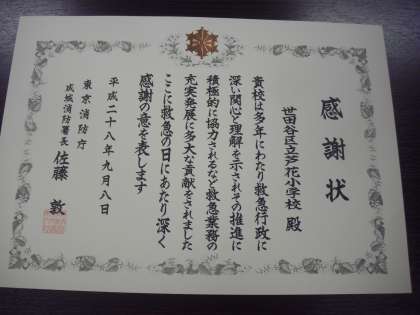 感謝状
世田谷区立芦花小学校 殿
貴校は多年にわたり救急行政に
深い関心と理解を示されその推進に
積極的に協力されるなど救急業務の
充実発展に多大な貢献をされました
ここに救急の日にあたり深く
感謝の意を表します
平成二十八年九月八日
東京消防庁
成城消防署長 佐藤 敦